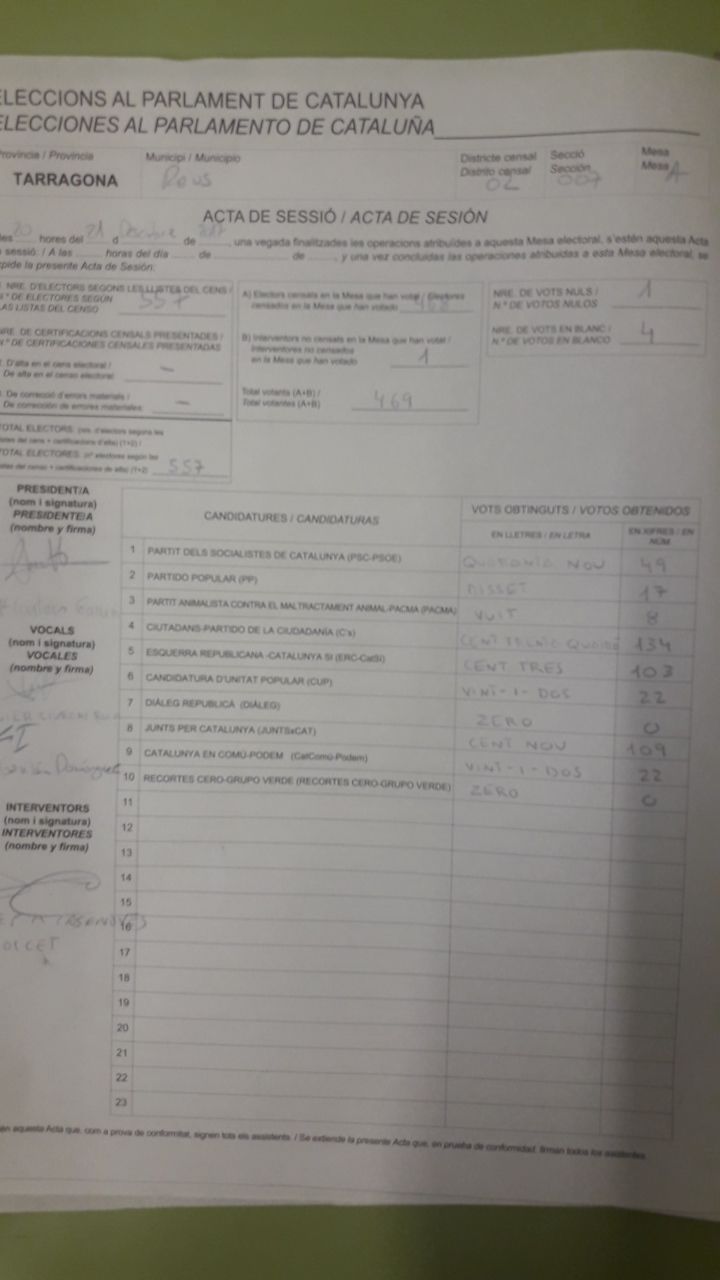 ELECCIONS AL PARLAMENT DE CATALUNYA
ELECCIONES AL PARLAMENTO DE CATALUÑA
Provincia / Provincia Municipi / Municipio Districte censal Secció Mesa
Distrito censal Sección Mesa A
TARRAGONA Reus 02 007
ACTA DE SESSIÓ / ACTA DE SESIÓN
les 20 hores del 21 d Desembre de 2017, una vegada finalitzades les operacions atribuïdes a aquesta Mesa electoral, s'estén aquesta Acta
sessió: / A las horas del día de de , y una vez concluidas las operaciones atribuidas a esta Mesa electoral, se
pide la presente Acta de Sesión:
NRE. D'ELECTORS SEGONS LES LLISTES DEL CENS /
N.º DE ELECTORES SEGÚN
LAS LISTAS DEL CENSO 557
NRE. DE CERTIFICACIONS CENSALS PRESENTADES /
N.º DE CERTIFICACIONES CENSALES PRESENTADAS
D'alta en el cens electoral /
De alta en el censo electoral: —
De correcció d'errors materials /
De corrección de errores materiales: —
TOTAL ELECTORS: (nre. d'electors segons les
llistes del cens + certificacions d'alta) (1+2) /
TOTAL ELECTORES: (nº electores según las
listas del censo + certificaciones de alta) (1+2) 557
A) Electors censats en la Mesa que han votat / Electores
censados en la Mesa que han votado 468
B) Interventors no censats en la Mesa que han votat /
Interventores no censados
en la Mesa que han votado 1
Total votants (A+B) /
Total votantes (A+B) 469
NRE. DE VOTS NULS / 1
N.º DE VOTOS NULOS
NRE. DE VOTS EN BLANC / 4
N.º DE VOTOS EN BLANCO
PRESIDENT/A
(nom i signatura)
PRESIDENTE/A
(nombre y firma)
VOCALS
(nom i signatura)
VOCALES
(nombre y firma)
Domínguez
INTERVENTORS
(nom i signatura)
INTERVENTORES
(nombre y firma)
CANDIDATURES / CANDIDATURAS VOTS OBTINGUTS / VOTOS OBTENIDOS
EN LLETRES / EN LETRA EN XIFRES / EN NÚM.
1 PARTIT DELS SOCIALISTES DE CATALUNYA (PSC-PSOE) QUARANTA NOU 49
2 PARTIDO POPULAR (PP) DISSET 17
3 PARTIT ANIMALISTA CONTRA EL MALTRACTAMENT ANIMAL-PACMA (PACMA) VUIT 8
4 CIUTADANS-PARTIDO DE LA CIUDADANÍA (C's) CENT TRENTA QUATRE 134
5 ESQUERRA REPUBLICANA -CATALUNYA SÍ (ERC-CatSí) CENT TRES 103
6 CANDIDATURA D'UNITAT POPULAR (CUP) VINT-I-DOS 22
7 DIÀLEG REPUBLICÀ (DIÀLEG) ZERO 0
8 JUNTS PER CATALUNYA (JUNTSxCAT) CENT NOU 109
9 CATALUNYA EN COMÚ-PODEM (CatComú-Podem) VINT-I-DOS 22
10 RECORTES CERO-GRUPO VERDE (RECORTES CERO-GRUPO VERDE) ZERO 0
11
12
13
14
15
16
17
18
19
20
21
22
23
en aquesta Acta que, com a prova de conformitat, signen tots els assistents. / Se extiende la presente Acta que, en prueba de conformidad, firman todos los asistentes.